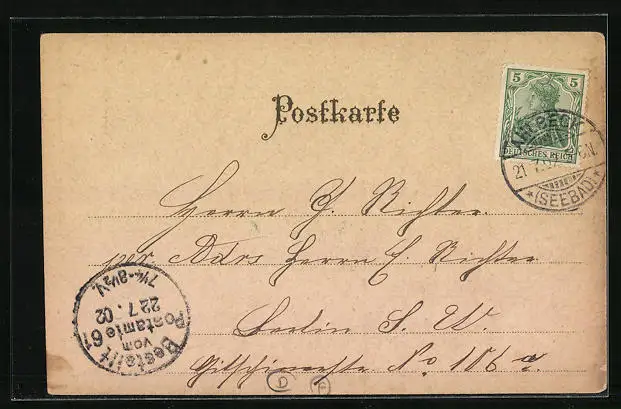 Postkarte
5 5
DEUTSCHES REICH
21.7.
(SEEBAD)
Herrn P. Richter
per Adrs Herrn C. Richter
Berlin S. W.
Gitschinerstr No 106 a.
Bestellt
vom
Postamte 61
22.7.02
7¼-8½V.
D